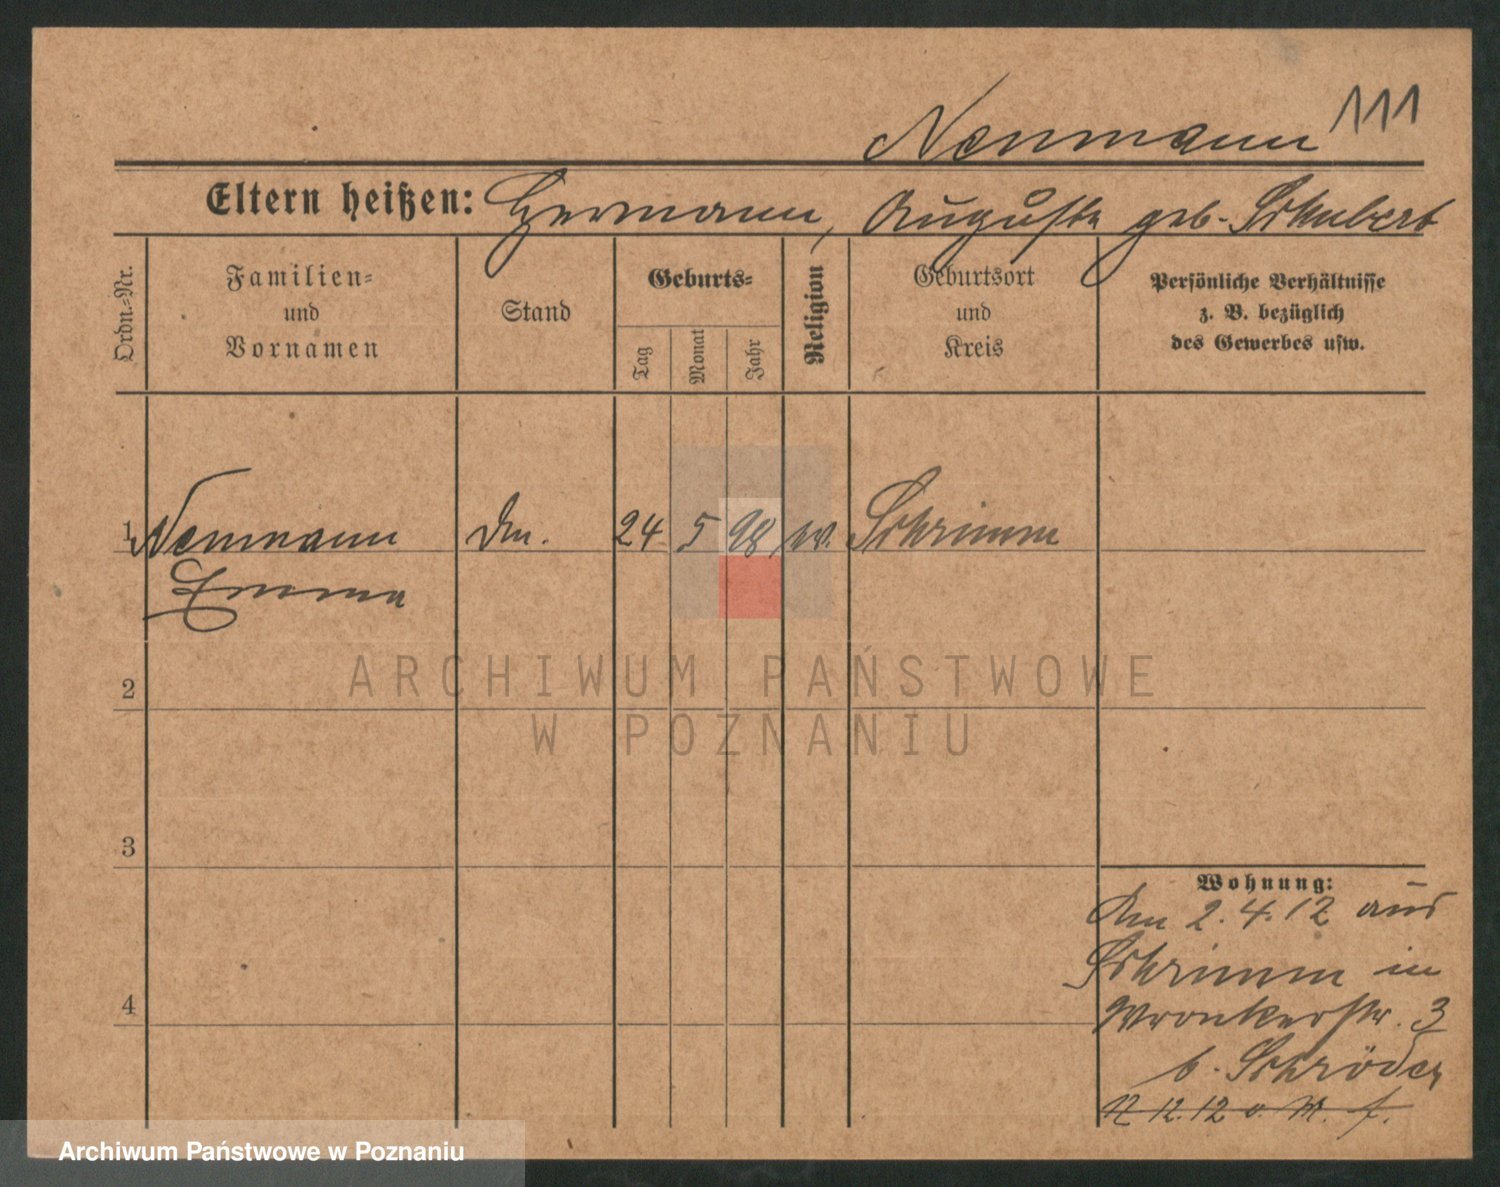 Neumann 111
Eltern heißen: Hermann, Auguste geb. Schubert
Ordn.-Nr.
Familien-
und
Vornamen
Stand
Geburts-
Tag
Monat
Jahr
Religion
Geburtsort
und
Kreis
Persönliche Verhältnisse
z. B. bezüglich
des Gewerbes usw.
1 Neumann 24 5 98 ev. Schrimm
Emma
2
3
4
Wohnung:
Am 2.4.12 aus
Schrimm in
Wronkerstr. 3
b. Schröder
12.12
ARCHIWUM PAŃSTWOWE
W POZNANIU
Archiwum Państwowe w Poznaniu